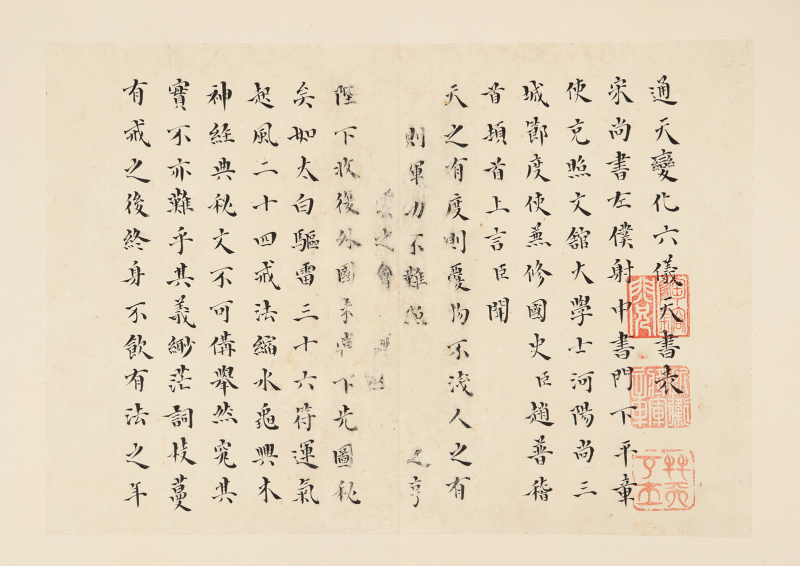 通天變化六儀天書表
宋尚書左僕射中書門下平章
使充照文舘大學士河陽尚三
城節度使兼修國史臣趙普稽
首頓首上言臣聞
天之有度則憂物不淺人之有
則軍力不難
之會
陛下收復外國下先圖秘
矣如太白驅雷三十六符運氣
起風二十四戒法縮水龜興木
神經典秘文不可備舉然究其
實不亦難乎其義緲茫詞枝蔓
有戒之後終身不飲有法之年